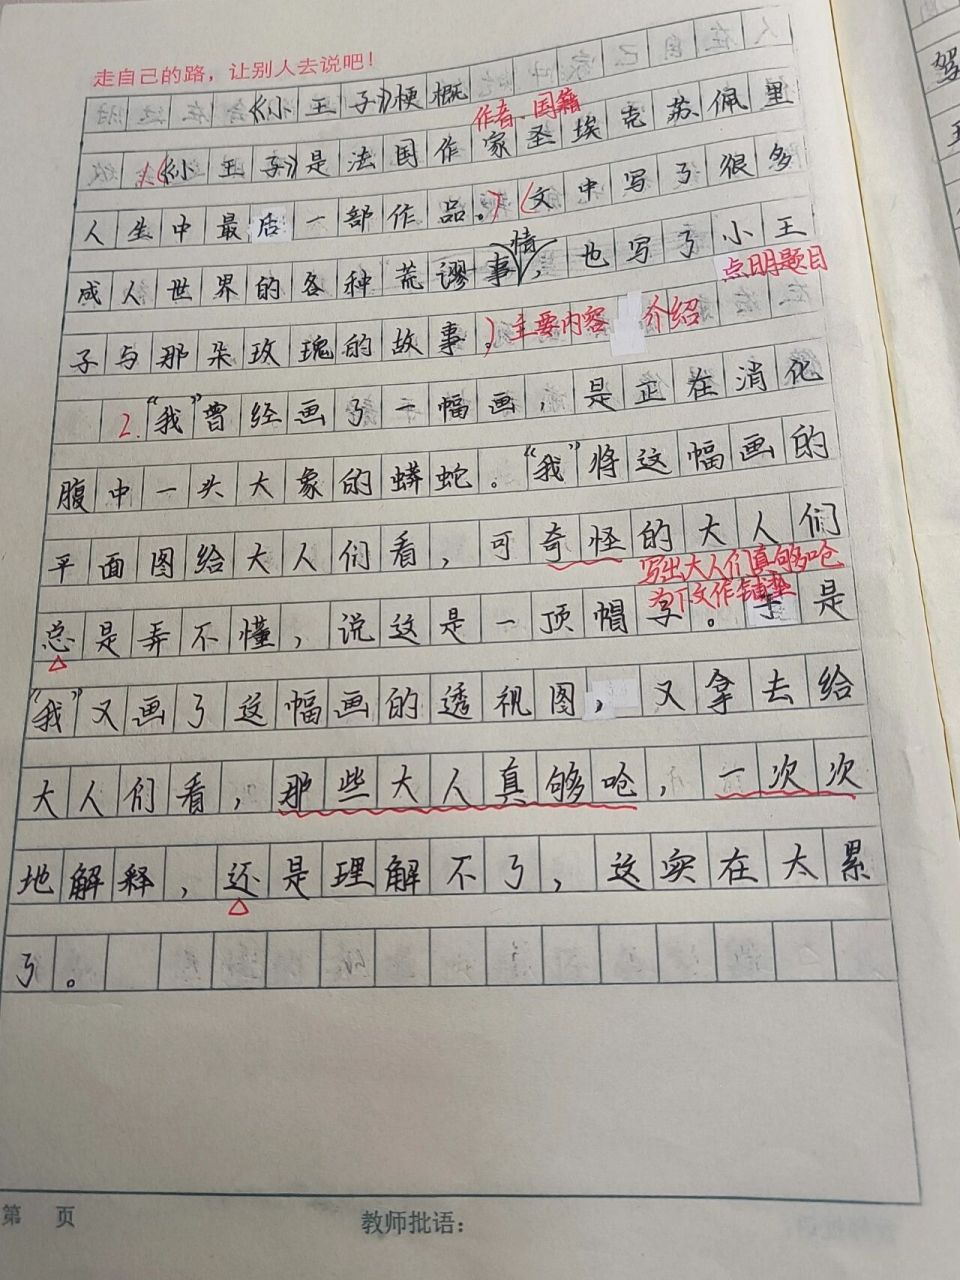 走自己的路，让别人去说吧！
《小王子》梗概
作者、国籍
1.《小王子》是法国作家圣埃克苏佩里
人生中最后一部作品。文中写了很多
成人世界的各种荒谬事情，也写了小王
点明题目
子与那朵玫瑰的故事。主要内容 介绍
2.“我”曾经画了一幅画，是正在消化
腹中一头大象的蟒蛇。“我”将这幅画的
平面图给大人们看，可奇怪的大人们
写出大人们真够呛
为下文作铺垫
总是弄不懂，说这是一顶帽子。于是
“我”又画了这幅画的透视图，又拿去给
大人们看，那些大人真够呛，一次次
地解释，还是理解不了，这实在太累
了。
第 页 教师批语：